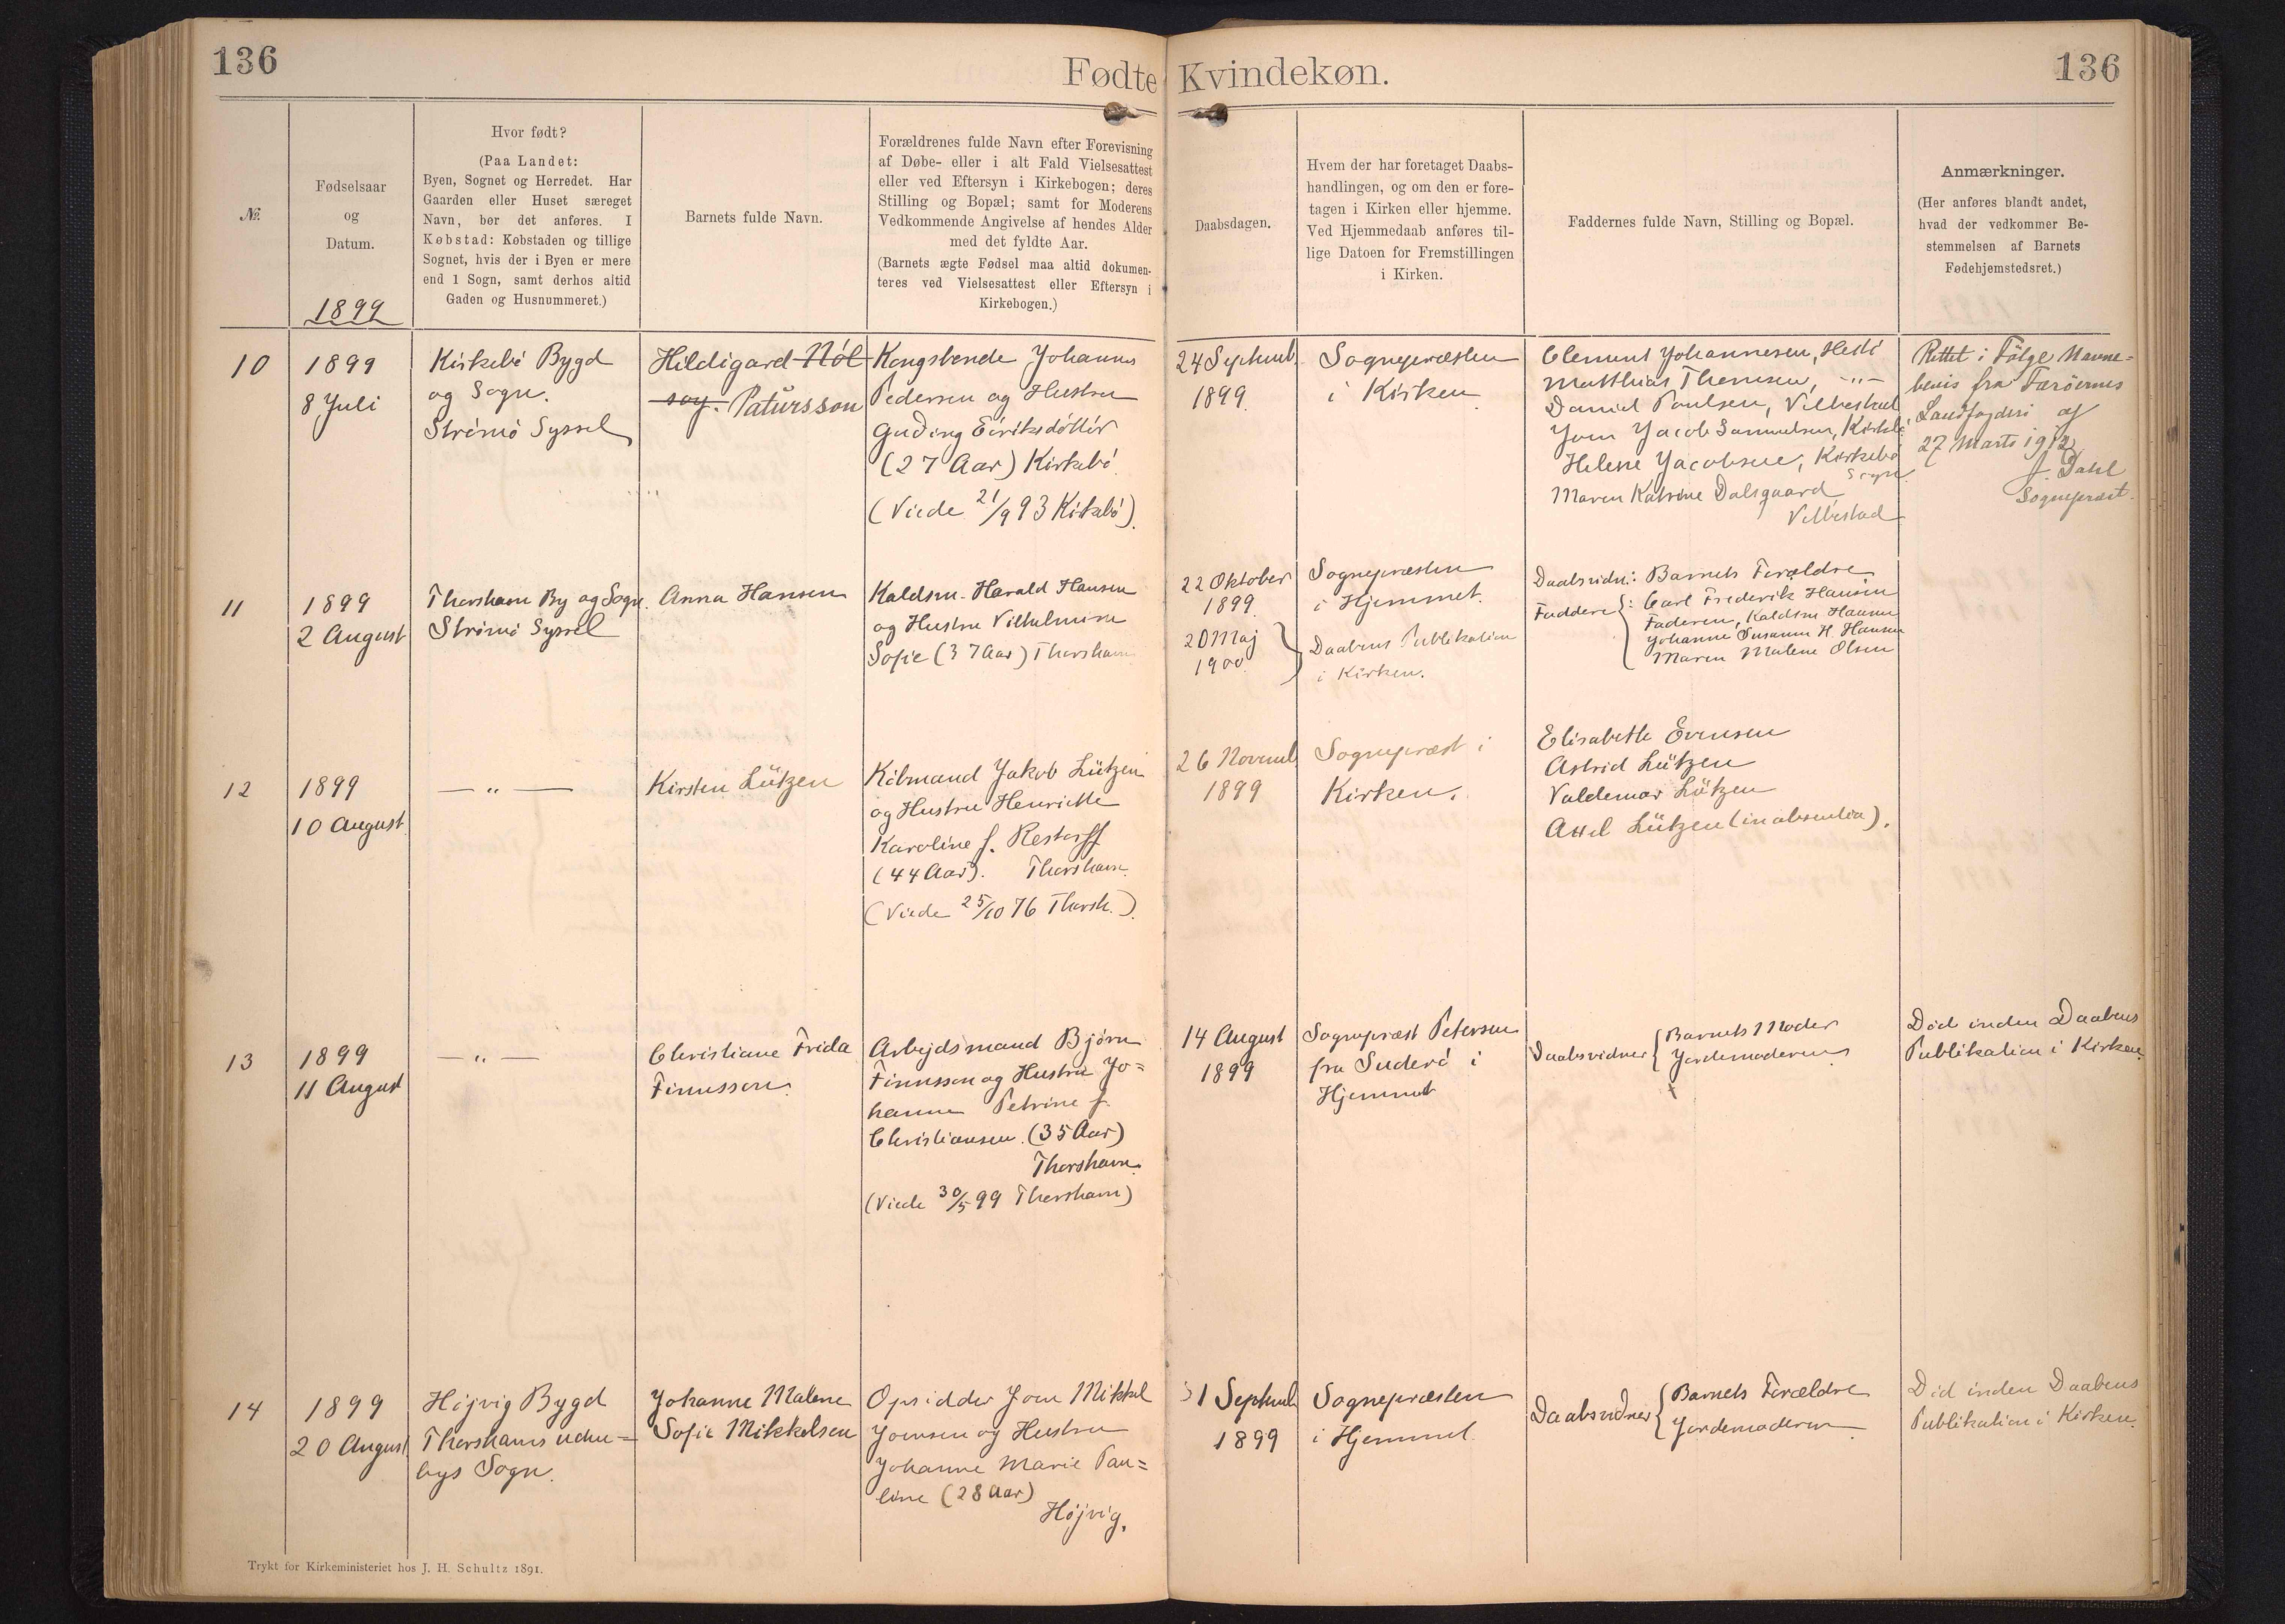 136
Fødte Kvindekøn.
136
№.
Fødselsaar
og
Datum.
1899
Hvor født?
(Paa Landet:
Byen, Sognet og Herredet. Har
Gaarden eller Huset særeget
Navn, bør det anføres. I
Købstad: Købstaden og tillige
Sognet, hvis der i Byen er mere
end 1 Sogn, samt derhos altid
Gaden og Husnummeret.)
Barnets fulde Navn.
Forældrenes fulde Navn efter Forevisning
af Døbe- eller i alt Fald Vielsesattest
eller ved Eftersyn i Kirkebogen; deres
Stilling og Bopæl; samt for Moderens
Vedkommende Angivelse af hendes Alder
med det fyldte Aar.
(Barnets ægte Fødsel maa altid dokumen-
teres ved Vielsesattest eller Eftersyn i
Kirkebogen.)
Daabsdagen.
Hvem der har foretaget Daabs-
handlingen, og om den er fore-
tagen i Kirken eller hjemme.
Ved Hjemmedaab anføres til-
lige Datoen for Fremstillingen
i Kirken.
Faddernes fulde Navn, Stilling og Bopæl.
Anmærkninger.
(Her anføres blandt andet,
hvad der vedkommer Be-
stemmelsen af Barnets
Fødehjemstedsret.)
10
1899
8 Juli
Kirkebö Bygd
og Sogn.
Strömö Syssel
Hildigard Nól
soy. Patursson
Kongsbonde Johannes
Pedersen og Hustru
Guðny Eiriksdóttir
(27 Aar) Kirkebö
(Viede 21/9 93 Kirkebö).
24 Septemb.
1899
Sognepræsten
i Kirken
Clement Johannesen, Hestö
Matthias Thomsen, -"-
Daniel Poulsen, Velbestad
Joen Jacob Samuelsen, Kirkebö
Helene Jacobsene, Kirkebö
Sogn.
Maren Katrine Dalsgaard
Velbestad
Rettet i Følge Navne-
bevis fra Færöernes
Landfogderi af
27 Marts 1912
J. Dahl
Sognepræst.
11
1899
2 August
Thorshavn By og Sogn.
Strömö Syssel
Anna Hansen
Kaldsm. Harald Hansen
og Hustru Vilhelmine
Sofie (37 Aar) Thorshavn
22 Oktober
1899
20 Maj
1900
Sognepræsten
i Hjemmet.
Daabens Publikation
i Kirken.
Daabsvidn: Barnets Forældre
Faddere: Carl Frederik Hansen
Faderen, Kaldsm Hansen
Johanne Susanne H. Hansen
Maren Malene Olsen
12
1899
10 August
— " —
Kirsten Lützen
Købmand Jakob Lützen
og Hustru Henriette
Karoline f. Restorff
(44 Aar). Thorshavn.
(Viede 25/10 76 Thorsh.)
26 Novemb
1899
Sognepræst i
Kirken.
Elisabeth Evensen
Astrid Lützen
Valdemar Lützen
Axel Lützen (in absentia).
13
1899
11 August
— " —
Christiane Frida
Finnsson.
Arbejdsmand Bjørn
Finnsson og Hustru Jo=
hanne Petrine f.
Christiansen. (35 Aar)
Thorshavn.
(Viede 30/5 99 Thorshavn)
14 August
1899
Sognepræst Petersen
fra Suderö i
Hjemmet
Daabsvidner
Barnets Moder
Jordemoderen
Död inden Daabens
Publikation i Kirken.
14
1899
20 August
Höjvig Bygd
Thorshavns uden=
bys Sogn.
Johanne Malene
Sofie Mikkelsen
Opsidder Joen Mikkel
Joensen og Hustru
Johanne Marie Pau=
line (28 Aar)
Höjvig.
1 Septemb
1899
Sognepræsten
i Hjemmet.
Daabsvidner
Barnets Forældre
Jordemoderen
Död inden Daabens
Publikation i Kirken.
Trykt for Kirkeministeriet hos J. H. Schultz 1891.